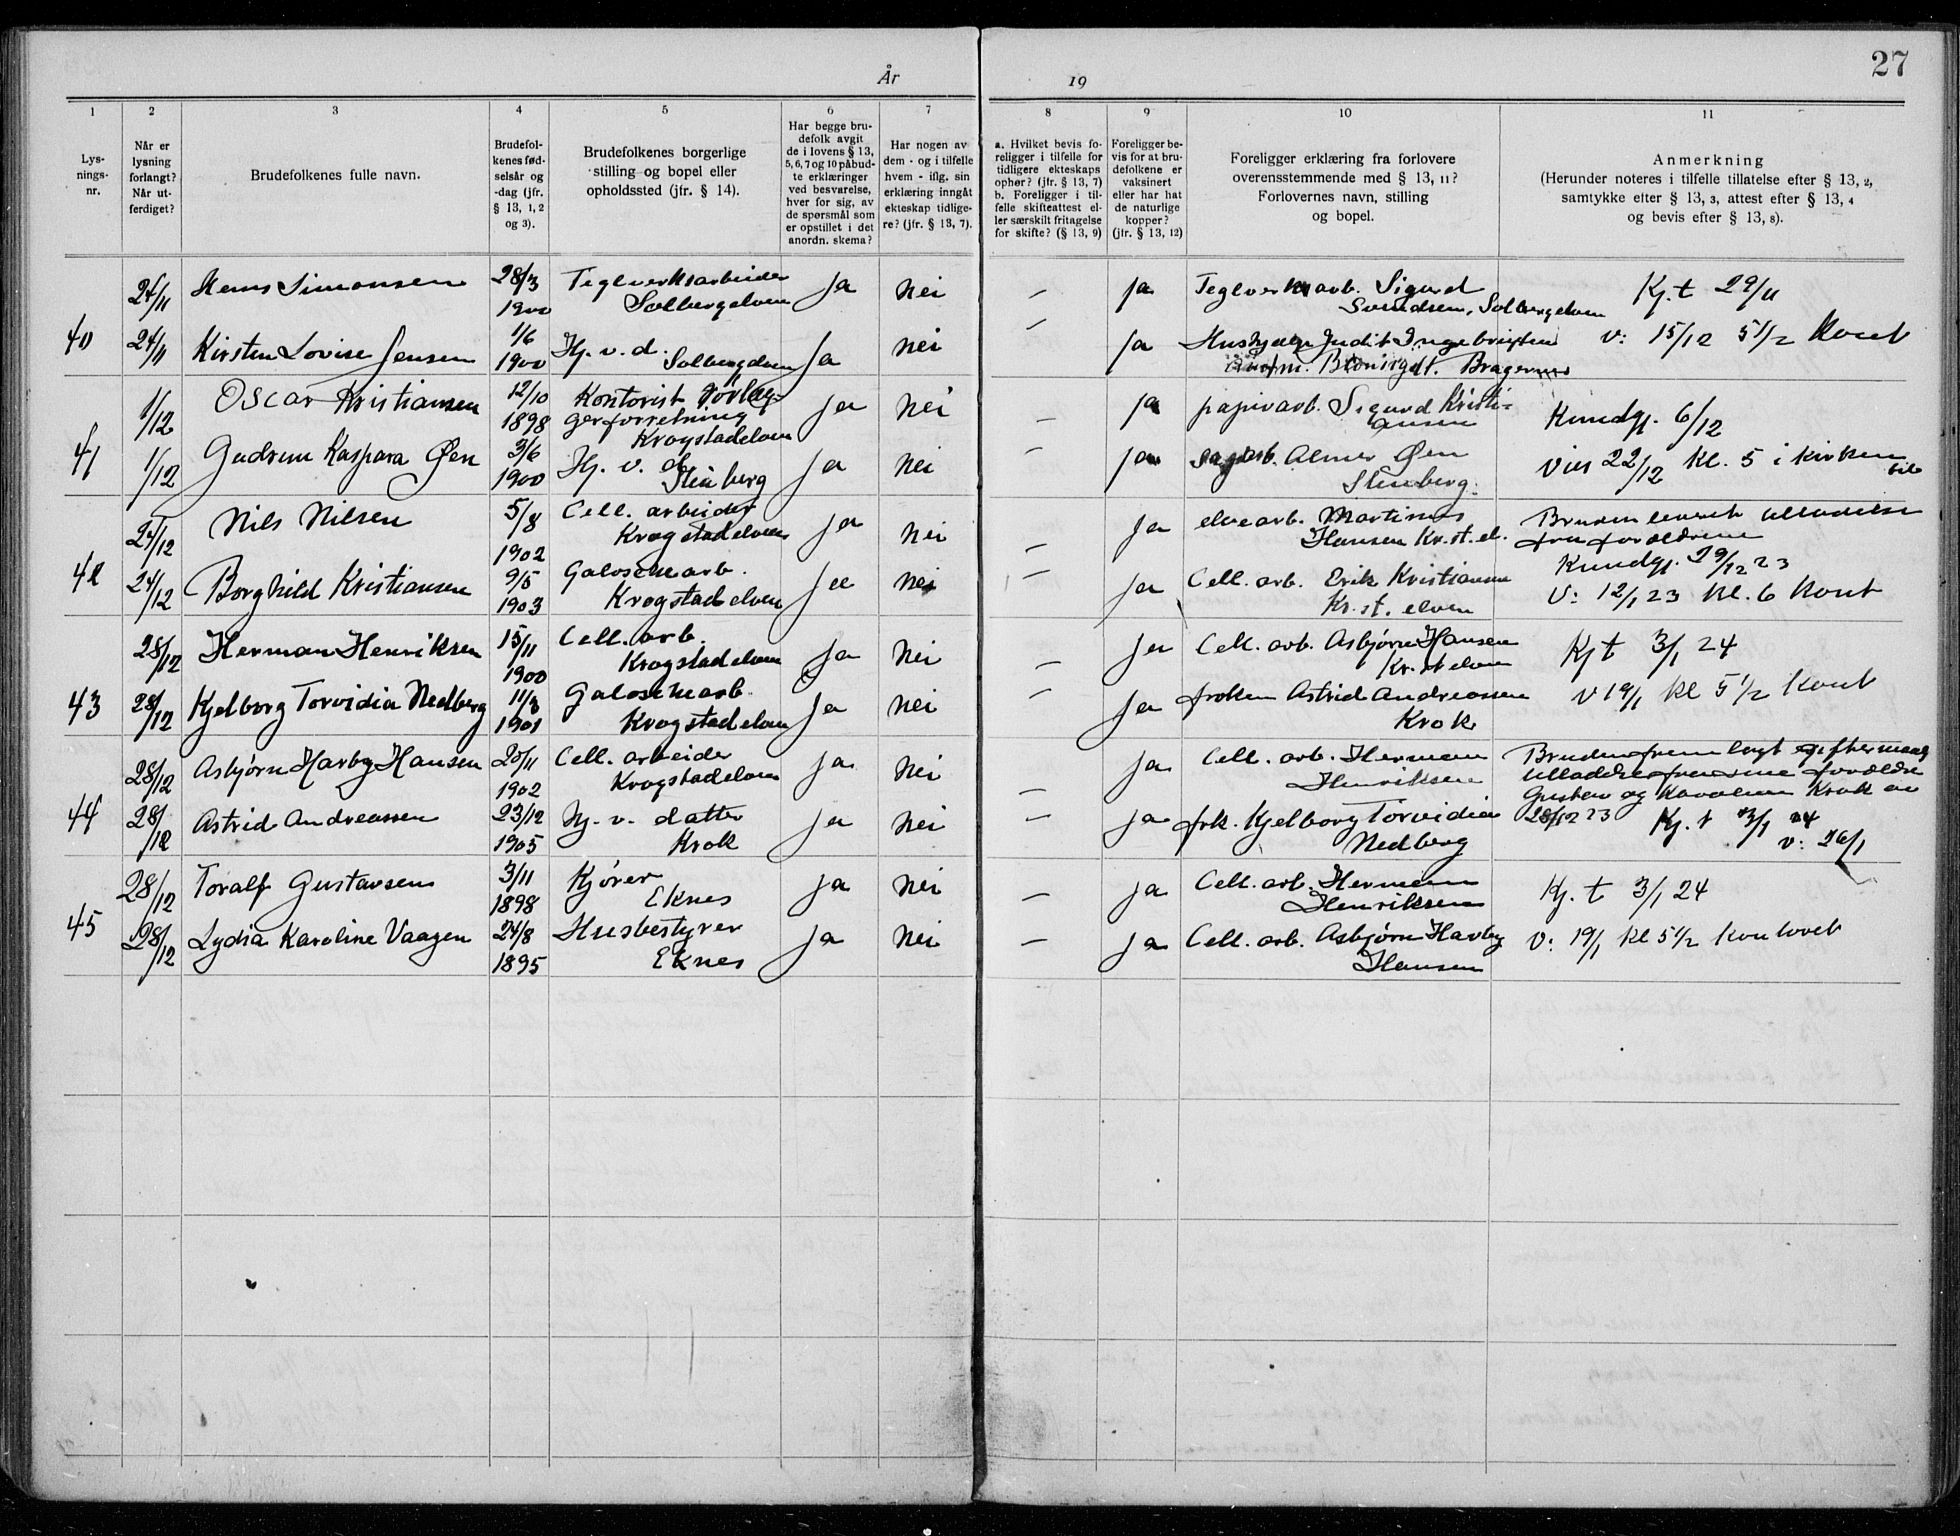 27
År 19
1 2 3 4 5 6 7 8 9 10 11
Lys-
nings-
nr.
Når er
lysning
forlangt?
Når ut-
ferdiget?
Brudefolkenes fulle navn.
Brudefol-
kenes fød-
selsår og
-dag (jfr.
§ 13, 1, 2
og 3).
Brudefolkenes borgerlige
stilling og bopel eller
opholdssted (jfr. § 14).
Har begge bru-
defolk avgit
de i lovens § 13,
5, 6, 7 og 10 påbud-
te erklæringer
ved besvarelse,
hver for sig, av
de spørsmål som
er opstillet i det
anordn. skema?
Har nogen av
dem - og i tilfelle
hvem - iflg. sin
erklæring inngåt
ekteskap tidlige-
re? (jfr. § 13, 7).
a. Hvilket bevis fo-
religger i tilfelle for
tidligere ekteskaps
ophør? (jfr. § 13, 7)
b. Foreligger i til-
felle skifteattest el-
ler særskilt fritagelse
for skifte? (§ 13, 9)
Foreligger be-
vis for at bru-
defolkene er
vaksinert
eller har hat
de naturlige
kopper?
(jfr. § 13, 12)
Foreligger erklæring fra forlovere
overensstemmende med § 13, 11?
Forlovernes navn, stilling
og bopel.
Anmerkning
(Herunder noteres i tilfelle tillatelse efter § 13, 2,
samtykke efter § 13, 3, attest efter § 13, 4
og bevis efter § 13, 8).
24/11 Hans Simonsen 28/3 1900 Teglverksarbeider Solbergelven Ja Nei – Ja Teglverksarb. Sigurd Svendsen, Solbergelven Kj. t 29/11
40 24/11 Kirsten Lovise Jensen 1/6 1900 Hj. v. d. Solbergelven Ja Nei – Ja Hushjælp Judit Ingebrigtsen Bragernes V: 15/12 5 1/2 Kont
1/12 Oscar Kristiansen 12/10 1898 Kontorist Forlæg- gerforretning Krogstadelven Ja Nei – Ja papirarb. Sigurd Kristi- ansen Kundgj. 6/12
41 1/12 Gudrun Kaspara Øen 3/6 1900 Hj. v. d. Stenberg Ja Nei – Ja sagarb. Almer Øen Stenberg. Vies 22/12 Kl. 5 i kirken
24/12 Nils Nilsen 5/8 1902 Cell. arbeider Krogstadelven Ja Nei – Ja elvearb. Martinus Hansen Kr.st.el. Bruden leveret tilladelse fra forældrene
42 24/12 Borghild Kristiansen 9/5 1903 Galoschearb. Krogstadelven Ja Nei – Ja Cell. arb. Erik Kristiansen Kr.st. elven Kundgj. 29/12 23
V: 12/1 23 Kl. 6 Kont
28/12 Herman Henriksen 15/11 1900 Cell. arb. Krogstadelven Ja Nei – Ja Cell. arb. Asbjørn Hansen Kr.st elven Kj t 3/1 24
43 28/12 Kjelborg Torvidia Nedberg 11/3 1901 Galoschearb. Krogstadelven Ja Nei – Ja frøken Astrid Andreassen Krok V 19/1 Kl 5 1/2 Kont
28/12 Asbjørn Harby Hansen 20/11 1902 Cell. arbeider Krogstadelven Ja Nei – Ja Cell. arb. Herman Henriksen Bruden fremlagt giftermaals
tilladelse fra sine forældre
Gustav og Karoline Krok av
44 28/12 Astrid Andreassen 23/12 1905 Hj. v. datter Krok Ja Nei – Ja frk. Kjelborg Torvidia Nedberg 28/12 23 Kj. t 3/1 24
V: 26/1
28/12 Toralf Gustavsen 3/11 1898 Kjører Eknes Ja Nei – Ja Cell. arb. Herman Henriksen Kj. t 3/1 24
45 28/12 Lydia Karoline Vaagen 24/8 1895 Husbestyrer Eknes Ja Nei – Ja Cell. arb. Asbjørn Harby Hansen V: 19/1 Kl 5 1/2 Kontoret